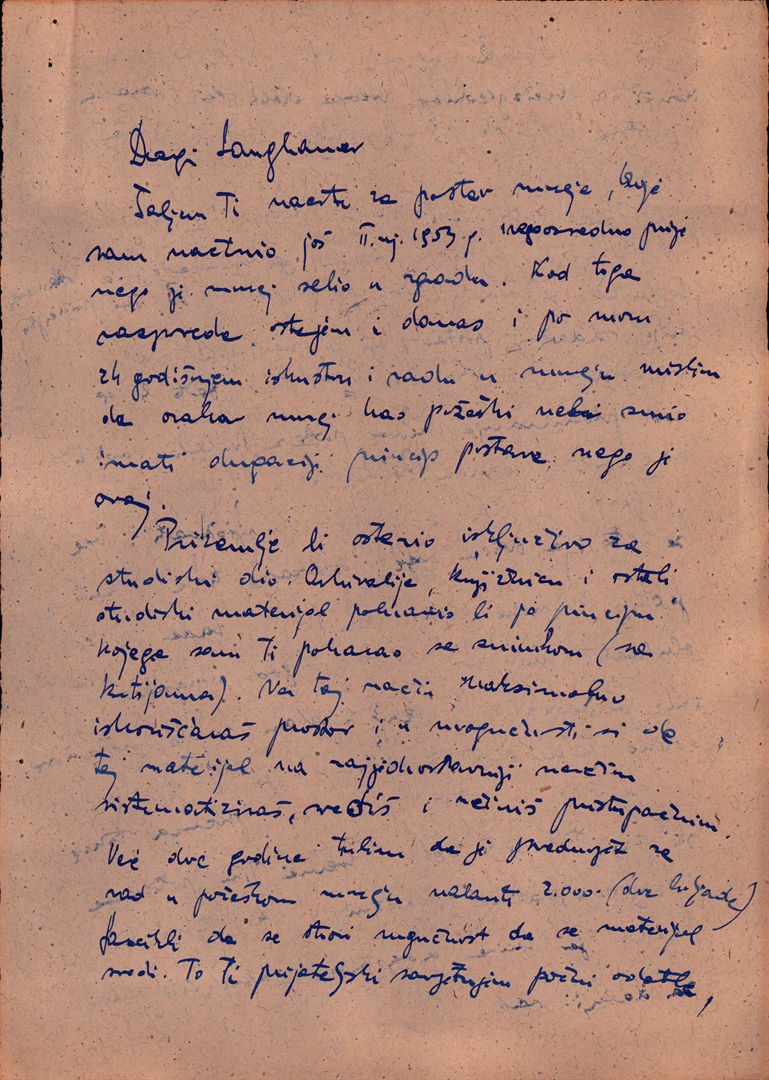 Dragi Langhamer
Šaljem Ti nacrte za postav muzeja, koje
sam načinio još II. mj. 1953 g. neposredno prije
nego je muzej selio u zgradu. Kod toga
rasporeda ostajem i danas i po mom
24 godišnjem iskustvu i radu u muzeju mislim
da ovakav muzej kao požeški nebi smio
imati drugačiji princip postave nego je
ovaj.
Prizemlje bi ostavio isključivo za
studijski dio. Arhivalije, knjižnicu i ostali
studijski materijal pohranio bi po principu
kojega sam Ti pokazao sa snimkom (sa
kutijama). Na taj način maksimalno
iskorišćavaš prostor i u mogućnosti si da
taj materijal na najjednostavniji način
sistematiziraš, središ i učiniš pristupačnim.
Već dvije godine trubim da je preduvjet za
rad u požeškom muzeju nabaviti 2.000 (dvije hiljade)
da se stvori mogućnost da se materijal
sredi. To Ti prijateljski savjetujem počni odatle,